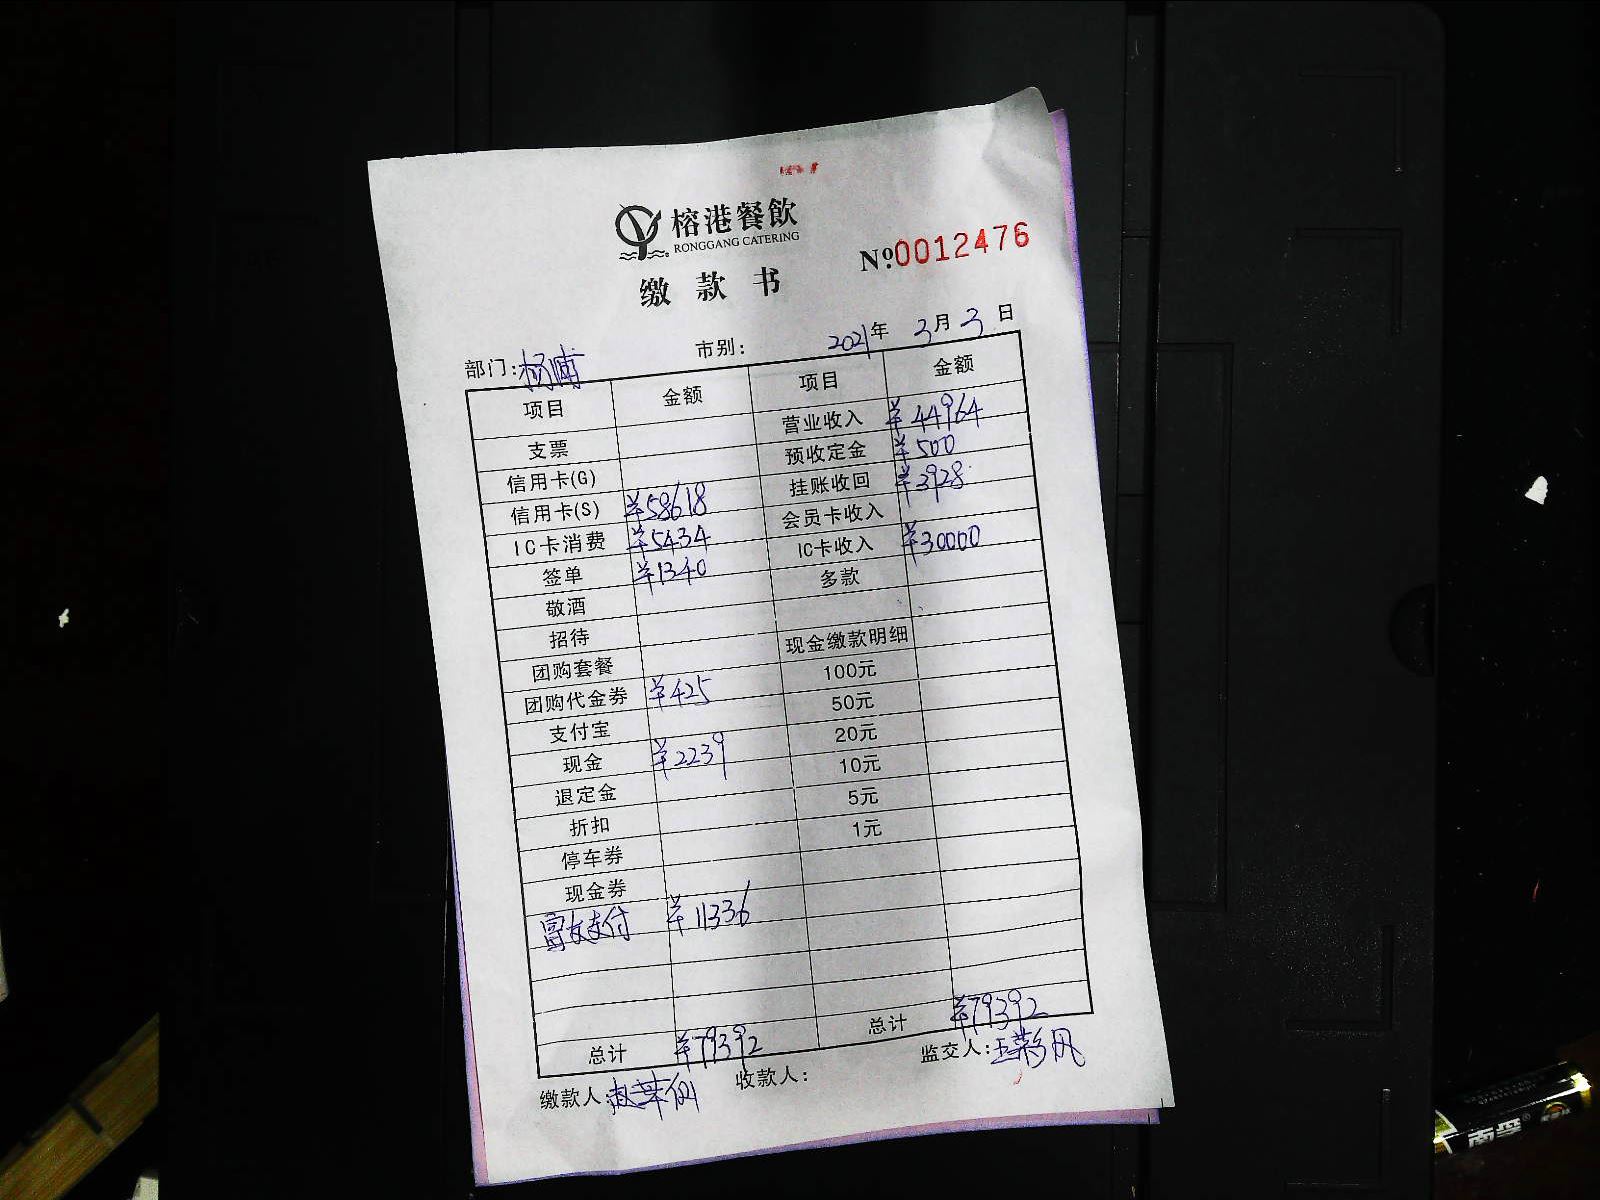 榕港餐飲
RONGGANG CATERING
№0012476
缴款书
部门:杨浦 市别: 2021年3月3日
项目 金额 项目 金额
支票 营业收入 ¥44964
信用卡(G) 预收定金 ¥500
信用卡(S) ¥58618 挂账收回 ¥3928
IC卡消费 ¥5434 会员卡收入
签单 ¥1340 IC卡收入 ¥30000
敬酒 多款
招待
团购套餐 现金缴款明细
团购代金券 ¥425 100元
支付宝 50元
现金 ¥2239 20元
退定金 10元
折扣 5元
停车券 1元
现金券
富友支付 ¥11336
总计 ¥79392 总计 ¥79392
缴款人: 收款人: 监交人:王彩凤
南孚